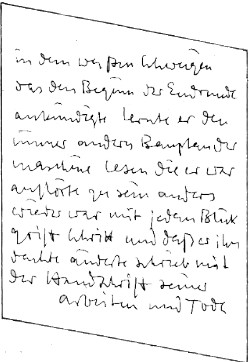 in dem weißen Schweigen
das den Beginn der Endrunde
ankündigte lernte er den
immer andern Bauplan der
Maschine lesen die er war
aufhörte zu sein anders
wieder war mit jedem Blick
Griff Schritt und daß er ihn
dachte änderte schrieb mit
der Handschrift seiner
Arbeiten und Tode